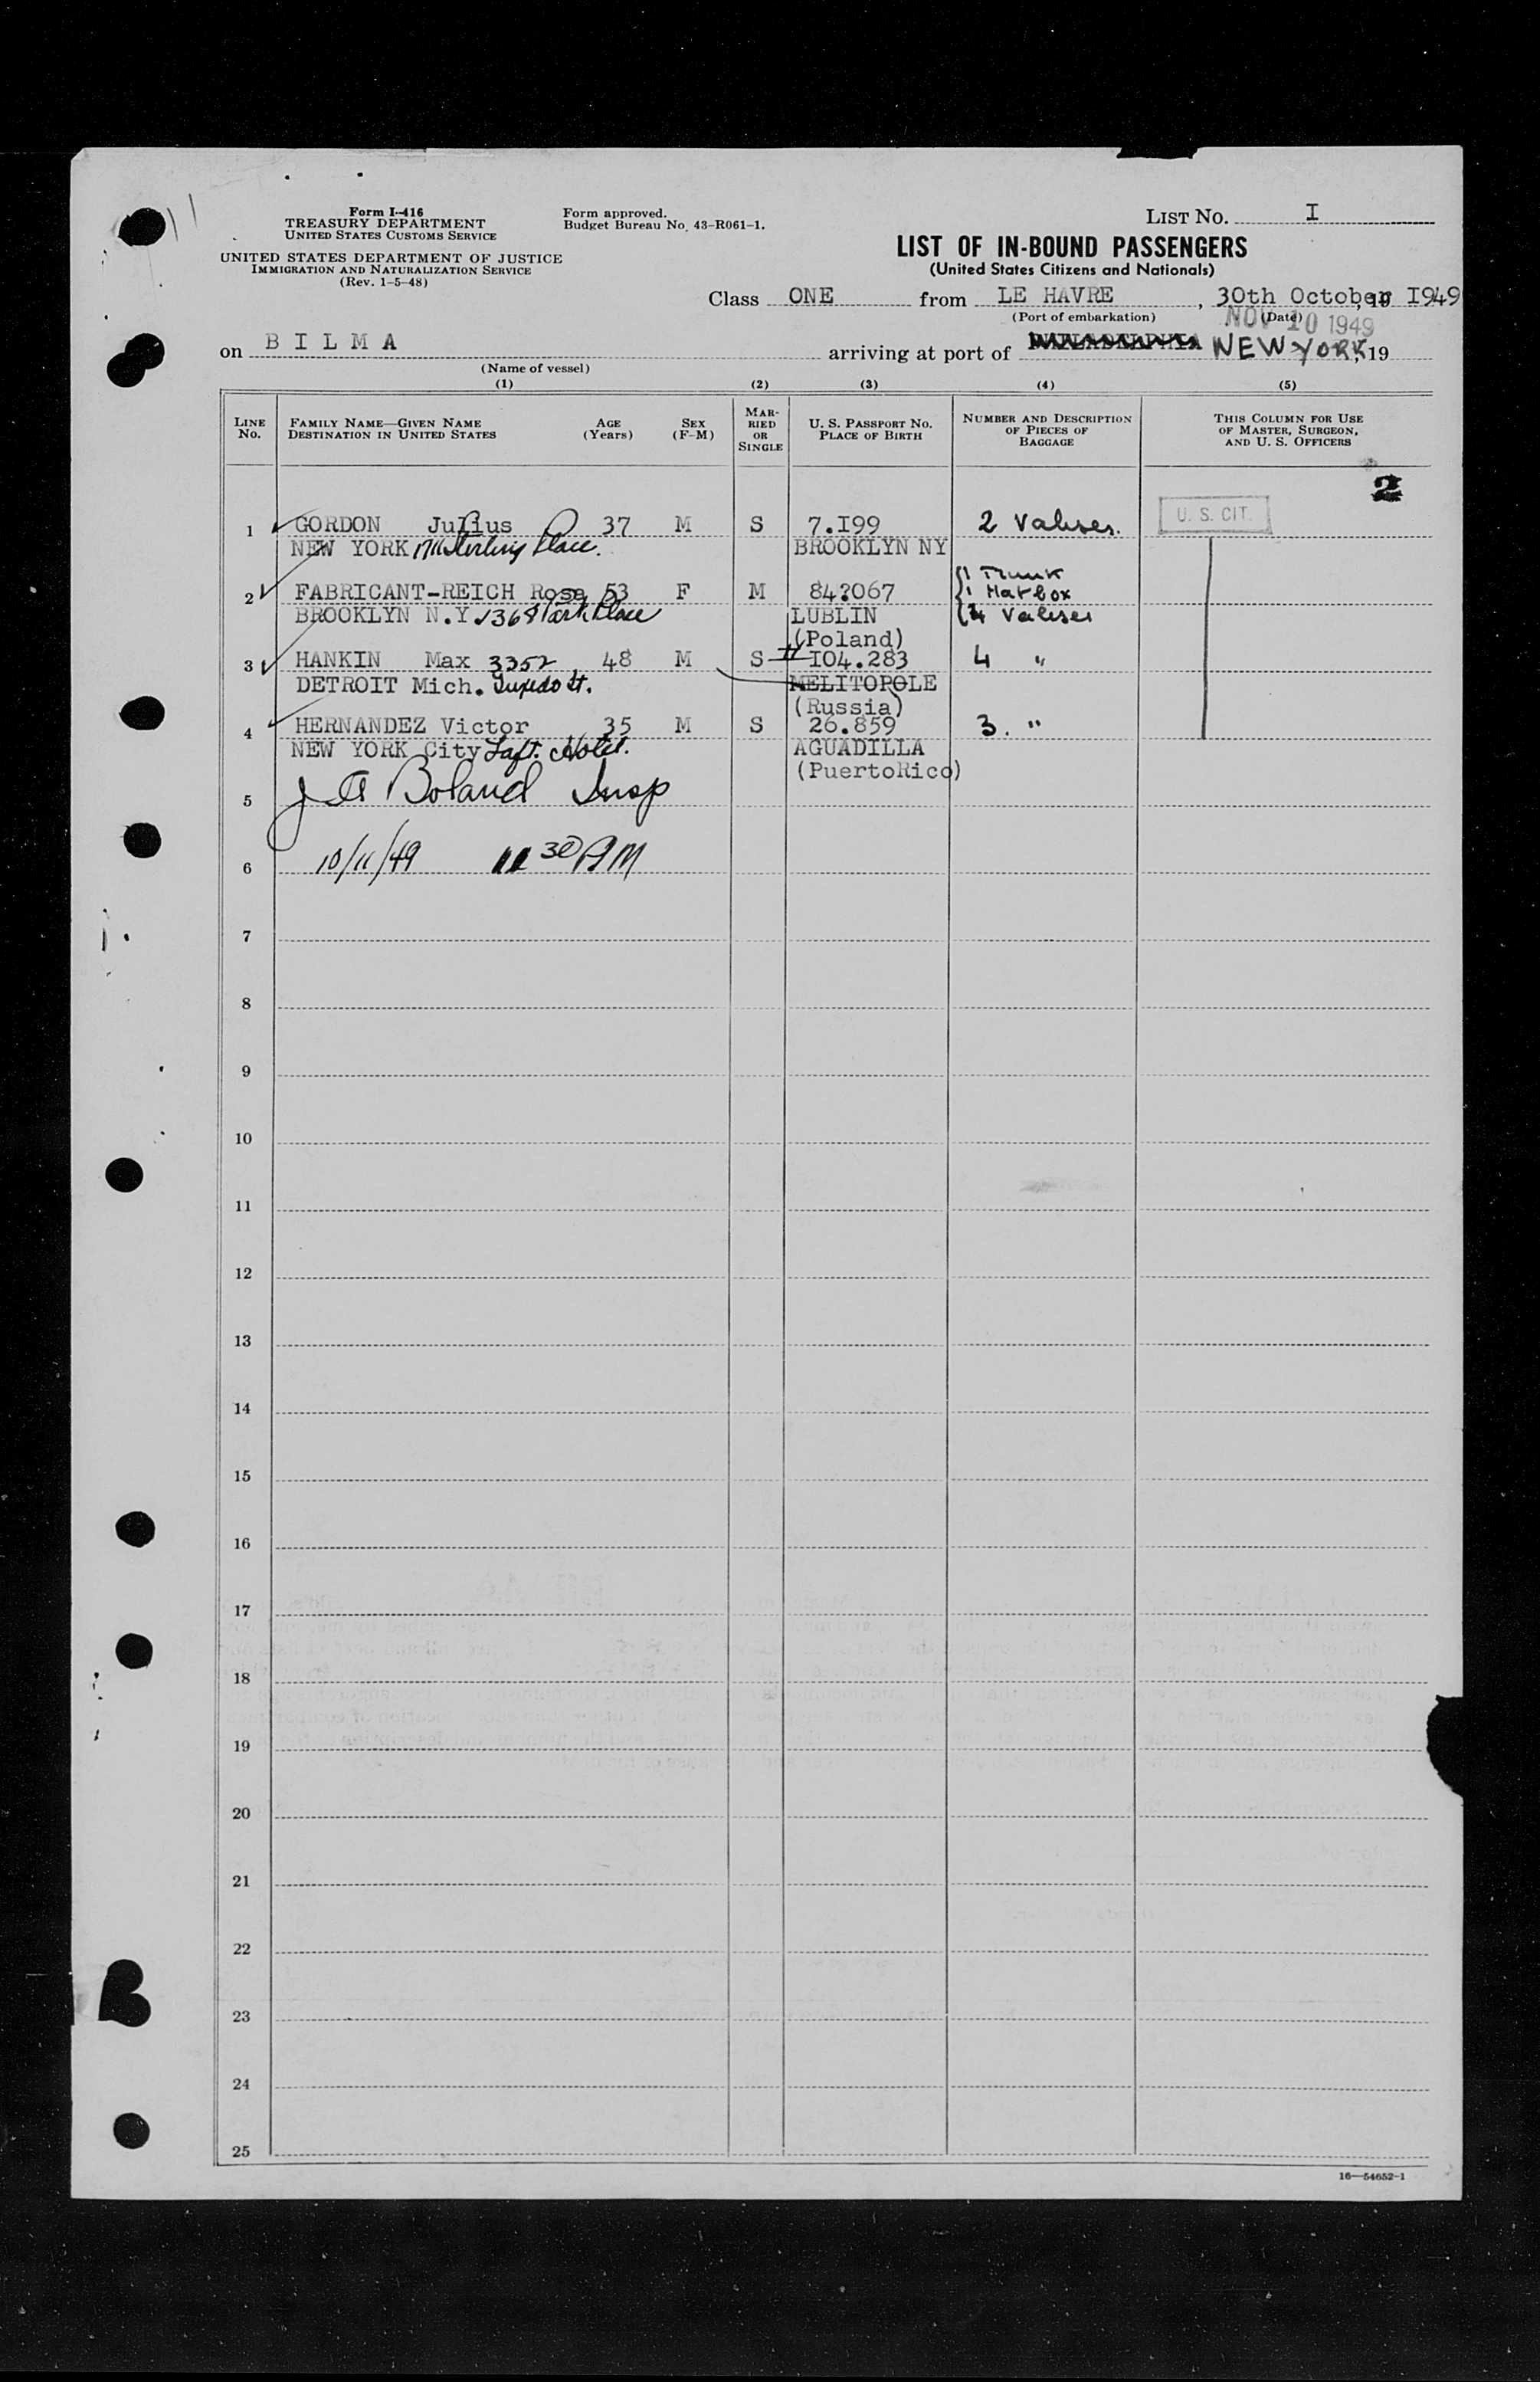 Form I-416
TREASURY DEPARTMENT
UNITED STATES CUSTOMS SERVICE
UNITED STATES DEPARTMENT OF JUSTICE
IMMIGRATION AND NATURALIZATION SERVICE
(Rev. 1-5-48)
Form approved.
Budget Bureau No. 43-R061-1.
LIST NO. I
LIST OF IN-BOUND PASSENGERS
(United States Citizens and Nationals)
Class ONE from LE HAVRE, 30th October, 19 I949
(Port of embarkation) (Date)
NOV 10 1949
on BILMA arriving at port of PHILADELPHIA NEW YORK, 19
(Name of vessel)
(1) (2) (3) (4) (5)
LINE No. FAMILY NAME—GIVEN NAME DESTINATION IN UNITED STATES AGE (Years) SEX (F-M) MARRIED OR SINGLE U. S. PASSPORT NO. PLACE OF BIRTH NUMBER AND DESCRIPTION OF PIECES OF BAGGAGE THIS COLUMN FOR USE OF MASTER, SURGEON, AND U. S. OFFICERS
2
1 GORDON Julius 37 M S 7.I99 2 Valises. U. S. CIT.
NEW YORK 1711 Sterling Place. BROOKLYN NY
1 Trunk
2 FABRICANT-REICH Rosa 53 F M 84?067 1 Hatbox
BROOKLYN N.Y. 1368 Park Place LUBLIN 4 Valises
(Poland)
3 HANKIN Max 3352 48 M S I04.283 4 "
DETROIT Mich. Tuxedo St. MELITOPOLE
(Russia)
4 HERNANDEZ Victor 35 M S 26.859 3. "
NEW YORK City Taft. Hotel. AGUADILLA
(PuertoRico)
5 J A Boland Insp
6 10/11/49 11 30 AM
7
8
9
10
11
12
13
14
15
16
17
18
19
20
21
22
23
24
25
16—54652-1